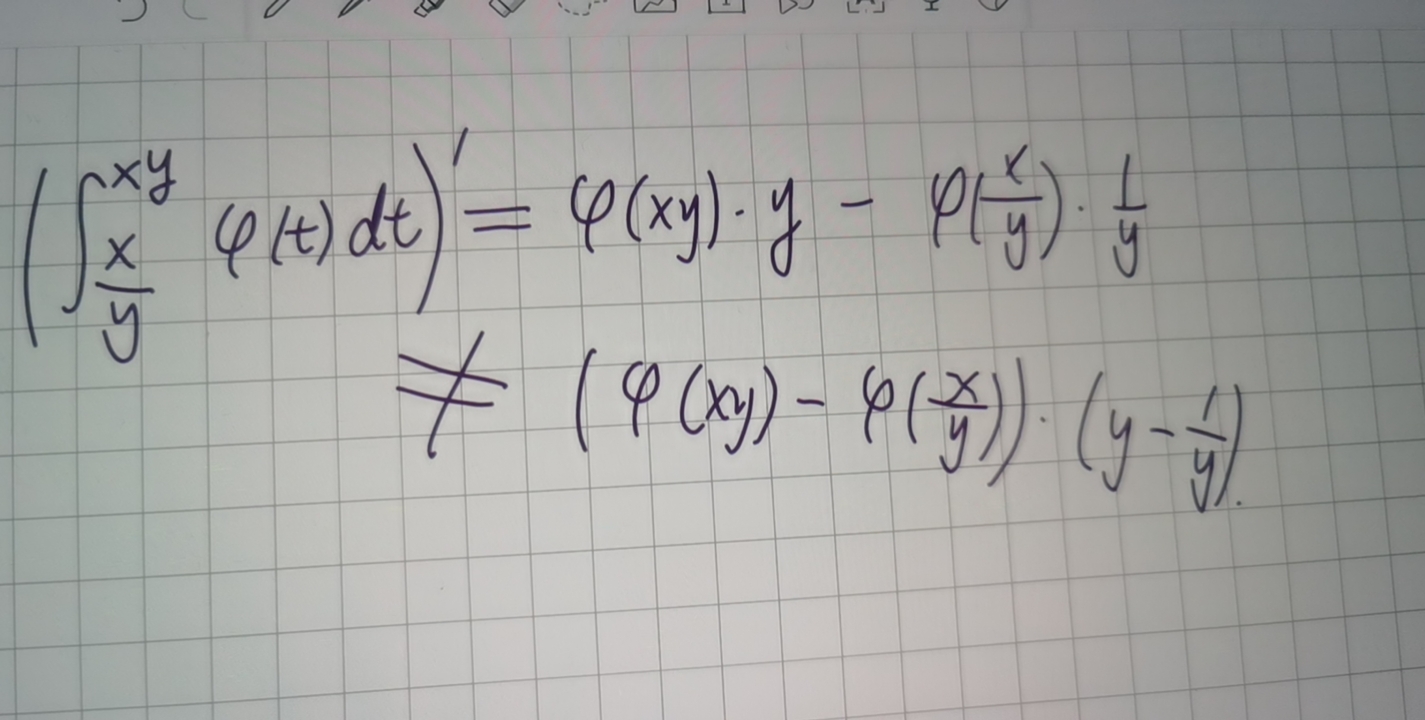 (∫_{x/y}^{xy} φ(t) dt)' = φ(xy) · y − φ(x/y) · 1/y
≠ (φ(xy) − φ(x/y)) · (y − 1/y).